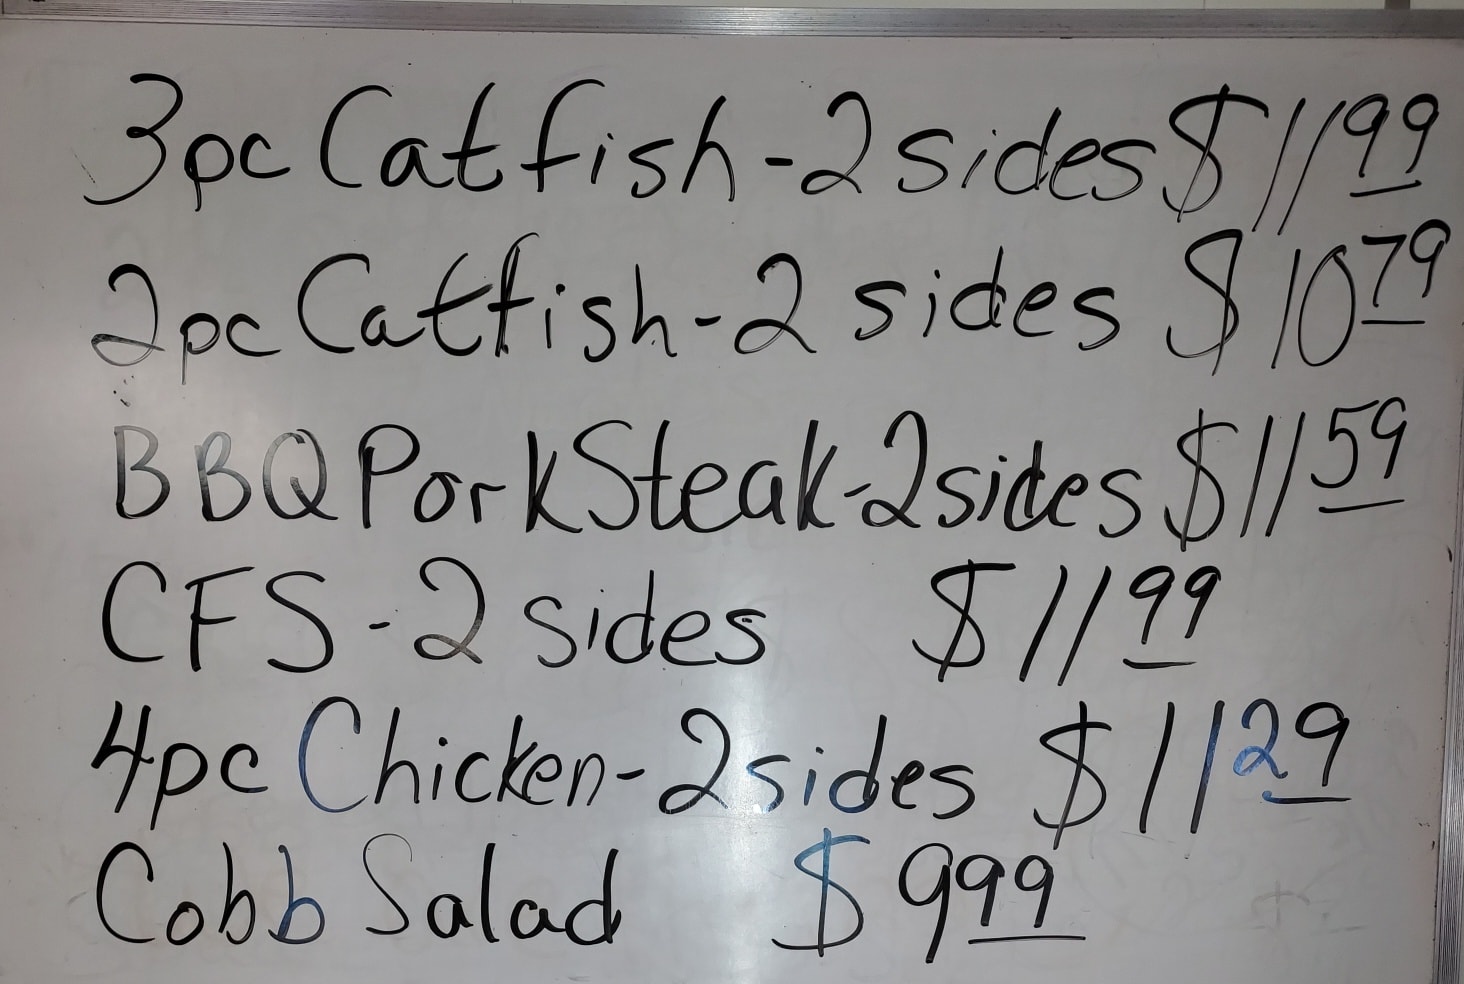 3pc Catfish-2 sides $11.99
2pc Catfish-2 sides $10.79
BBQ Pork Steak-2 sides $11.59
CFS-2 sides $11.99
4pc Chicken-2 sides $11.29
Cobb Salad $9.99